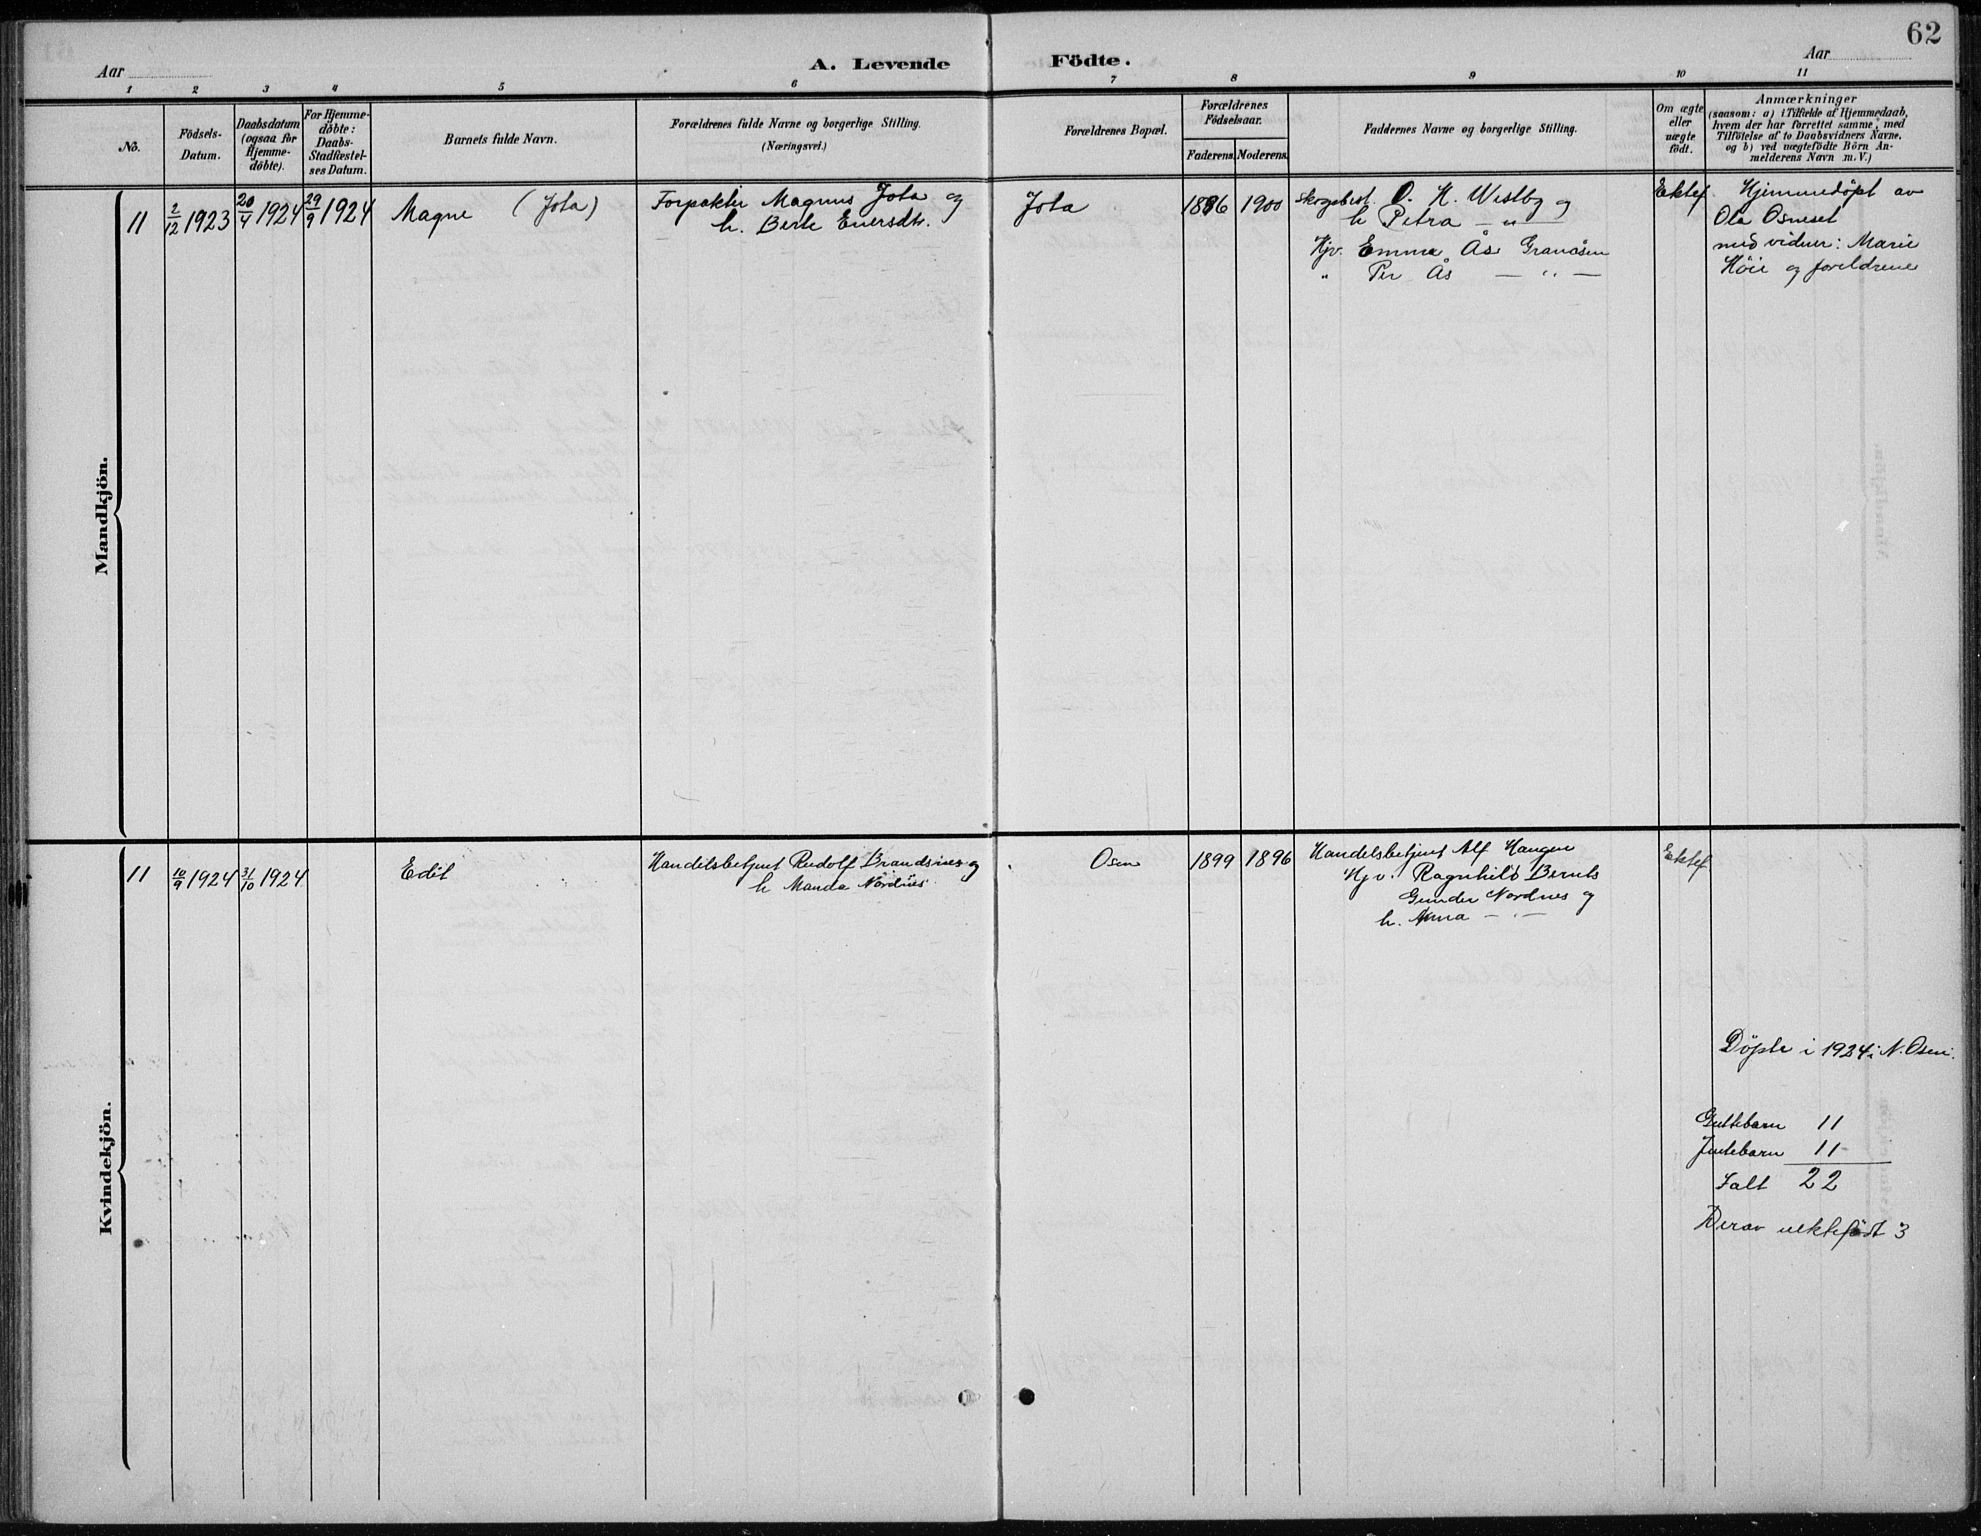 62
Aar A. Levende Födte. Aar
1 2 3 4 5 6 7 8 9 10 11
No.
Födsels-
Datum.
Daabsdatum
(ogsaa for
Hjemme-
döbte).
For Hjemme-
döbte:
Daabs-
Stadfæstel-
ses Datum.
Barnets fulde Navn.
Forældrenes fulde Navne og borgerlige Stilling.
(Næringsvei.)
Forældrenes Bopæl.
Forældrenes
Födselsaar.
Faderens. Moderens.
Faddernes Navne og borgerlige Stilling.
Om ægte
eller
uægte
födt.
Anmærkninger
(saasom: a) i Tilfælde af Hjemmedaab,
hvem der har forrettet samme, med
Tilföielse af to Daabsvidners Navne,
og b) ved uægtefödte Börn An-
melderens Navn m. V.)
Mandkjön.
11 2/12 1923 20/4 1924 29/9 1924 Magne (Jota)
Forpakter Magnus Jota og
h. Berte Enersdtr.
Jota 1896 1900
Skogsbest. O. K. Westby og
h Petra — " —
Hjv. Emma Ås Granåsen
" Per Ås — " —
Ektef.
Hjemmedöpt av
Ola Osneset
med vidner: Marie
Höie og foreldrene
Kvindekjön.
11 10/9 1924 31/10 1924 Edit
Handelsbetjent Rudolf Brandsnes og
h Manda Nordnes
Osen 1899 1896
Handelsbetjent Alf Haugen
Hjv. Ragnhild Bernts
Gunder Nordnes og
h. Anna — " —
Ektef.
Döpte i 1924 i N. Osen.
Guttebarn 11
Jentebarn 11
Ialt 22
Derav uektefödt 3